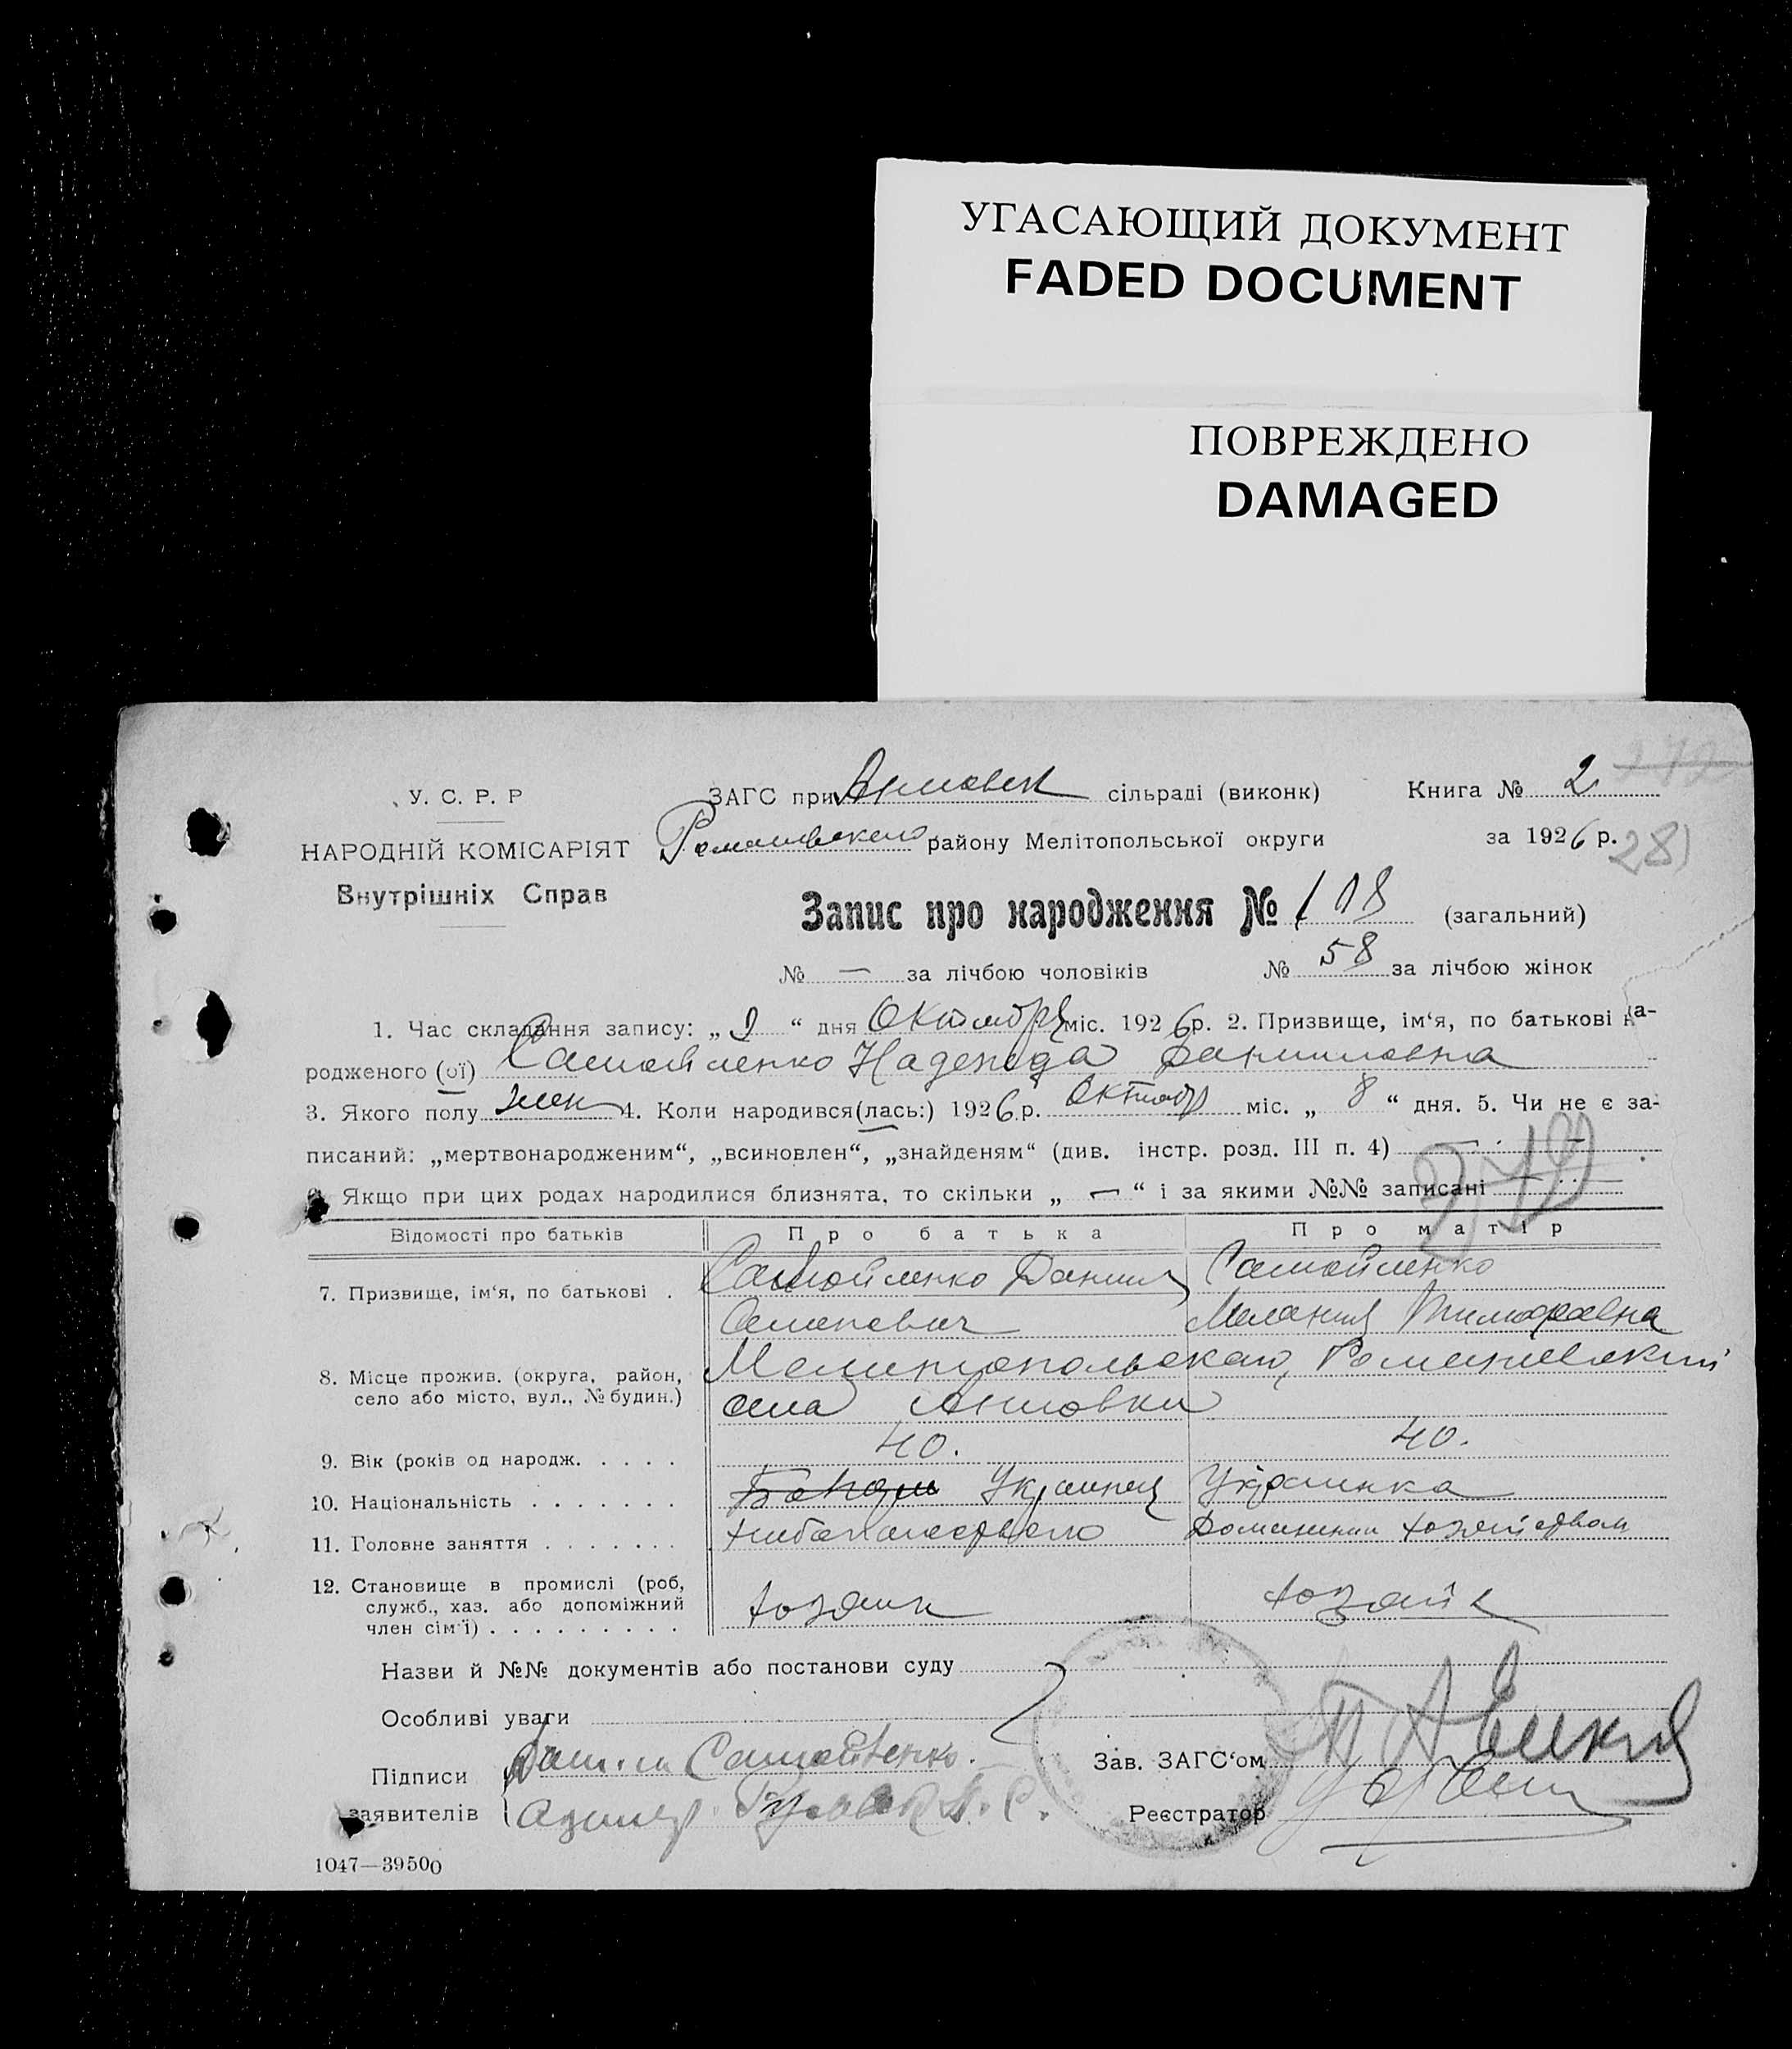 УГАСАЮЩИЙ ДОКУМЕНТ
FADED DOCUMENT
ПОВРЕЖДЕНО
DAMAGED
У. С. Р. Р
НАРОДНІЙ КОМІСАРІЯТ
Внутрішніх Справ
ЗАГС при сільраді (виконк)
Книга № 2
району Мелітопольської округи
за 1926 р.
281
Запис про народження № 108 (загальний)
№ — за лічбою чоловіків № 58 за лічбою жінок
1. Час складання запису: „9“ дня Октября міс. 1926 р. 2. Призвище, ім‘я, по батькові на-
родженого (ої) Самойленко Надежда Даниловна
3. Якого полу жен 4. Коли народився(лась:) 1926 р. Октябр міс. „8“ дня. 5. Чи не є за-
писаний: „мертвонародженим“, „всиновлен“, „знайденям“ (див. інстр. розд. III п. 4) —
279
6. Якщо при цих родах народилися близнята, то скільки „—“ і за якими №№ записані
Відомості про батьків
Про батька
Про матір
7. Призвище, ім‘я, по батькові .
Самойленко Данил
Самойленко
Мелания
8. Місце прожив. (округа, район,
село або місто, вул., № будин.)
Мелитопольскаго,
села
9. Вік (років од народж. . . . .
40.
40.
10. Національність . . . . . . .
Украинец
Украинка
11. Головне заняття . . . . . . .
Хлебопашество
Домашним хозяйством
12. Становище в промислі (роб,
служб., хаз. або допоміжний
член сім‘ї) . . . . . . . . .
хозяин
хозяйк
Назви й №№ документів або постанови суду
Особливі уваги
Підписи
заявителів
Данил Самойленко.
Зав. ЗАГС‘ом
Реєстратор
1047—39500